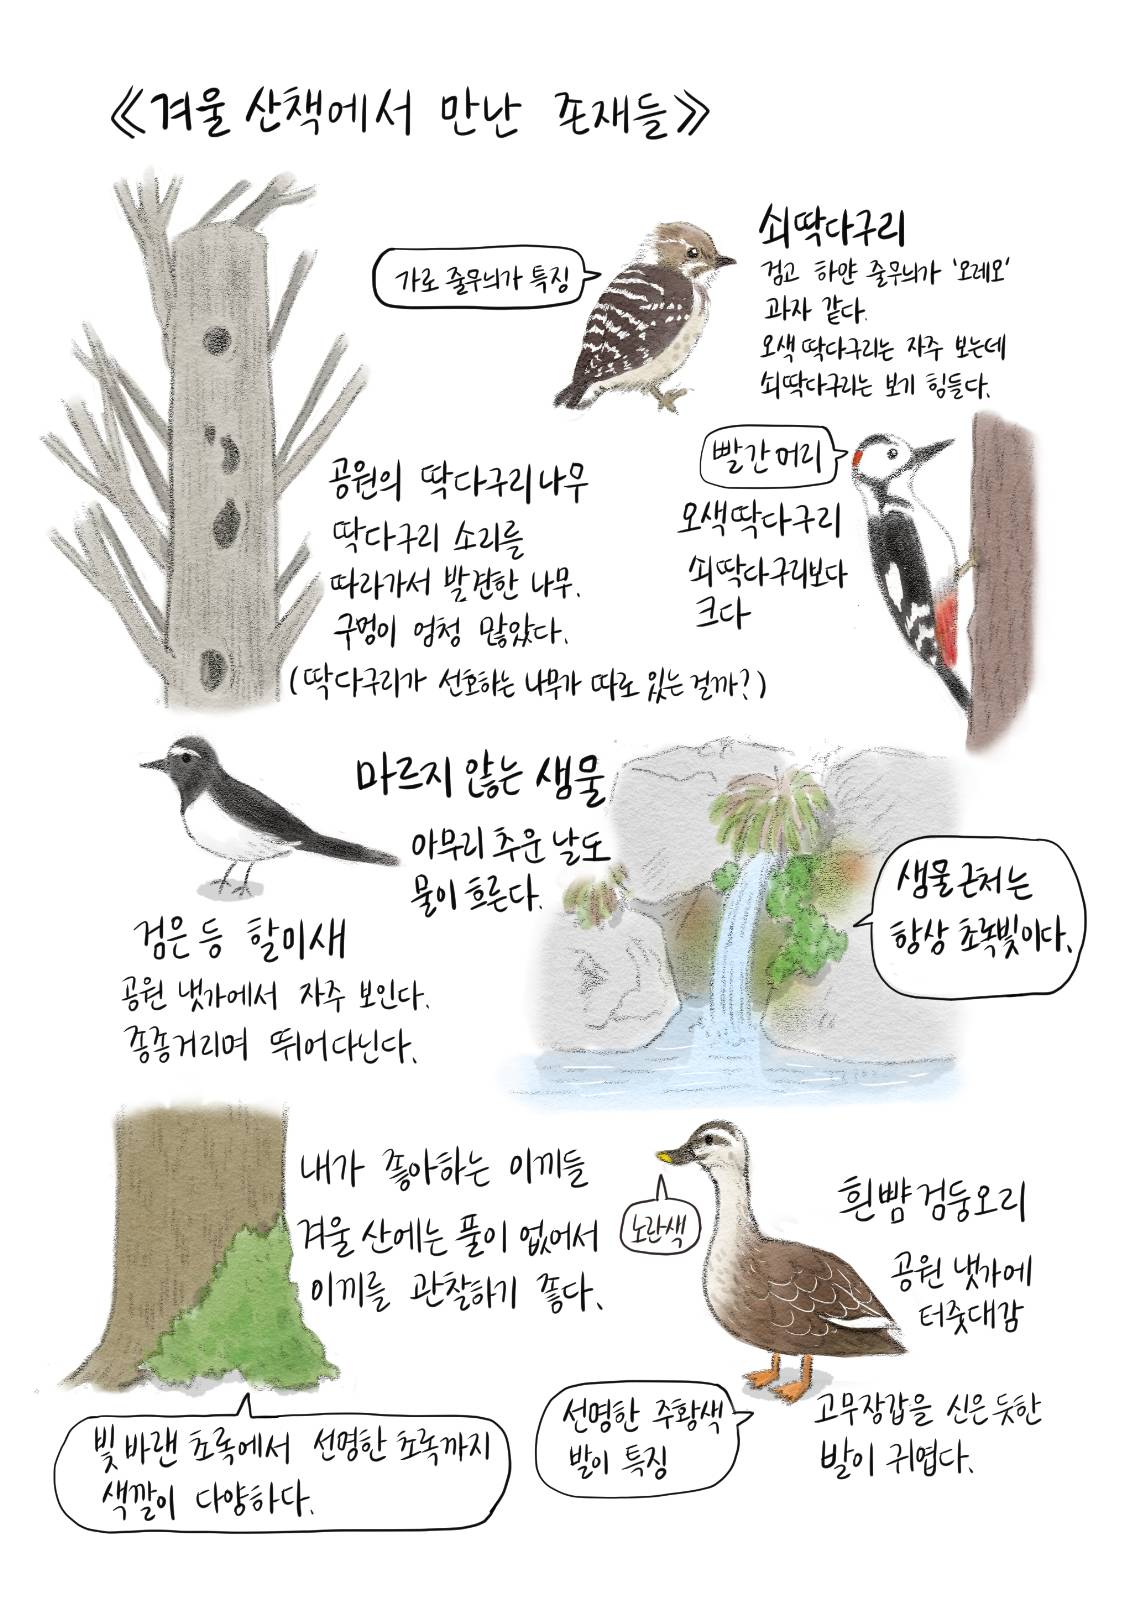 《겨울 산책에서 만난 존재들》
가로 줄무늬가 특징
쇠딱다구리
검고 하얀 줄무늬가 '오레오'
과자 같다.
오색딱다구리는 자주 보는데
쇠딱다구리는 보기 힘들다.
빨간 머리
오색딱다구리
쇠딱다구리보다
크다
공원의 딱다구리나무
딱다구리 소리를
따라가서 발견한 나무.
구멍이 엄청 많았다.
(딱다구리가 선호하는 나무가 따로 있는 걸까?)
마르지 않는 샘물
아무리 추운 날도
물이 흐른다.
샘물 근처는
항상 초록빛이다.
검은 등 할미새
공원 냇가에서 자주 보인다.
종종거리며 뛰어다닌다.
내가 좋아하는 이끼들
겨울 산에는 풀이 없어서
이끼를 관찰하기 좋다.
빛바랜 초록에서 선명한 초록까지
색깔이 다양하다.
노란색
흰뺨검둥오리
공원 냇가에
터줏대감
선명한 주황색
발이 특징
고무장갑을 신은 듯한
발이 귀엽다.